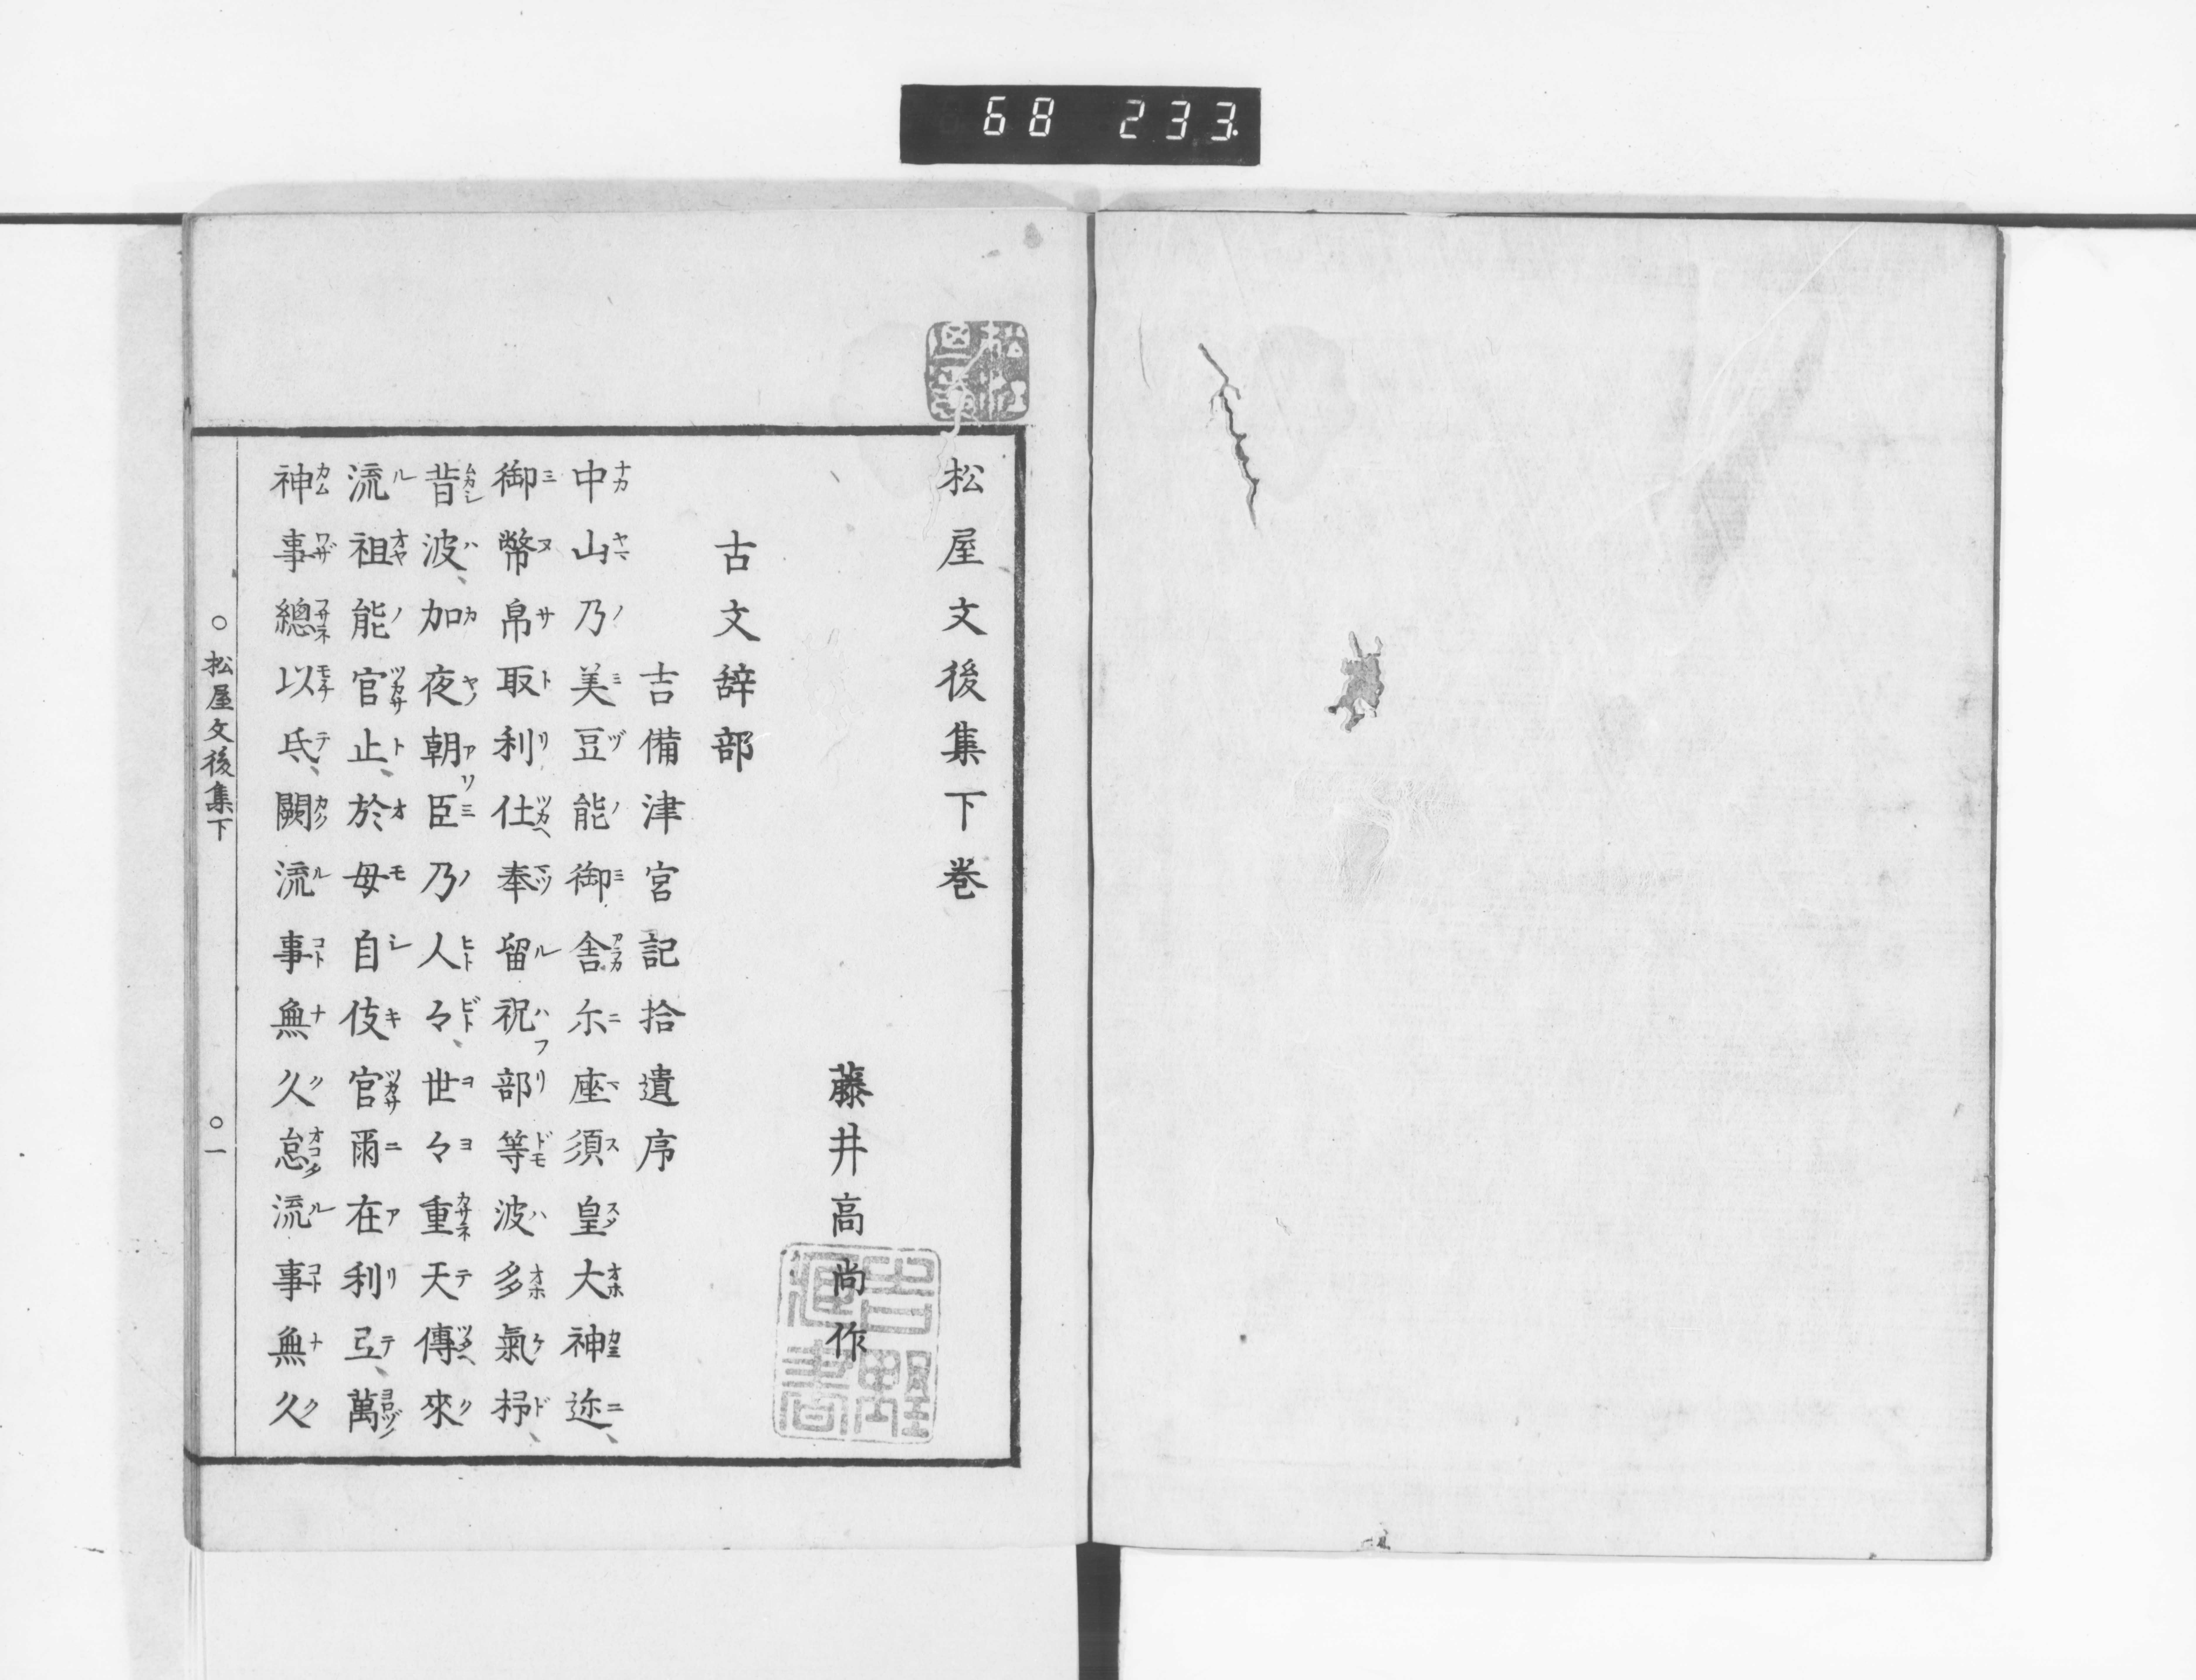 68 233.
松屋文後集下巻
藤井高尚作
古文辞部
吉備津宮記拾遺序
中山乃美豆能御舎尓座須皇大神迩、
御幣帛取利仕奉留祝部等波多氣杼、
昔波、加夜朝臣乃人々、世々重天傳來
流祖能官止、於母自伎官爾在利弖、萬
神事總以氐、闕流事無久怠流事無久
○松屋文後集下 ○一
吉野